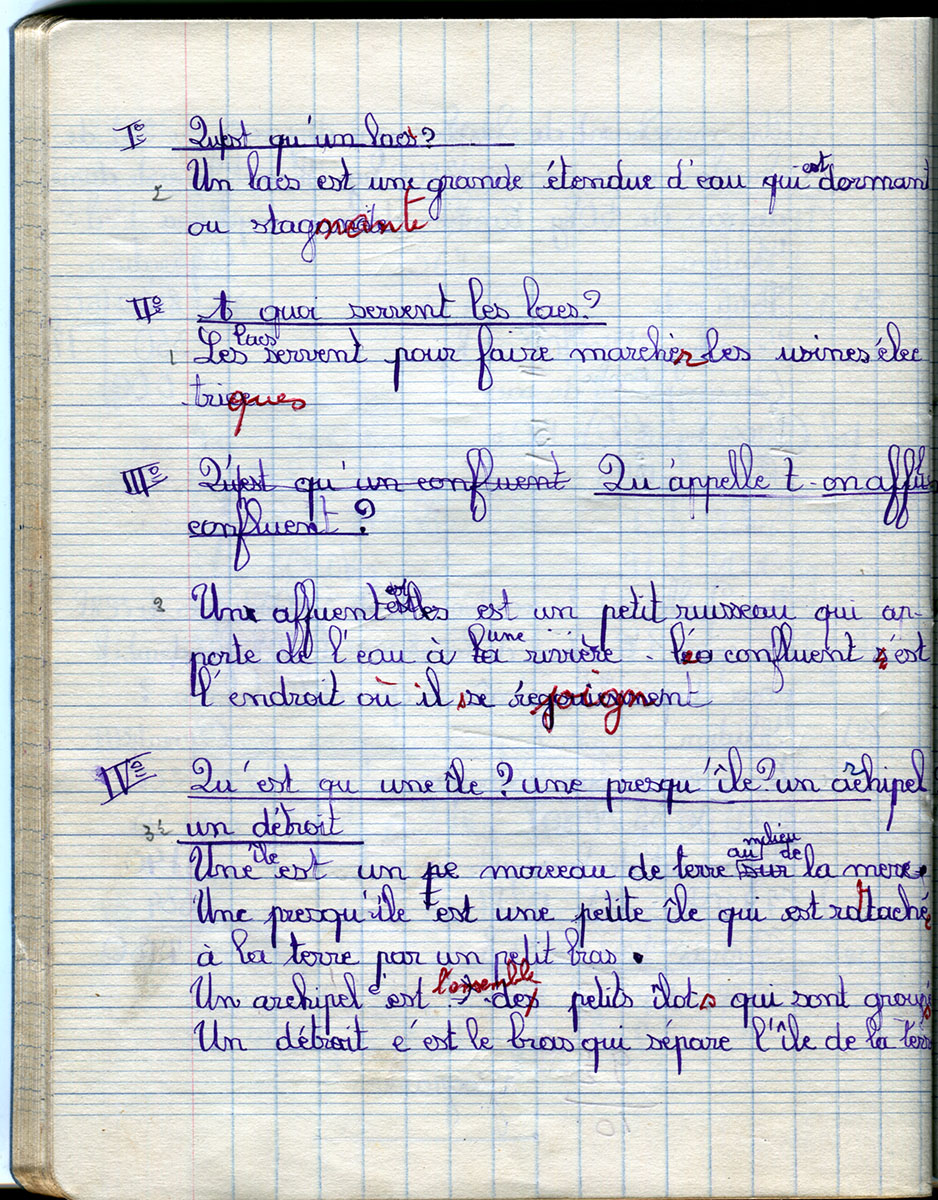 I° Qu'est qu'un lac?
2 Un lacs est une grande étendue d'eau qui est dormant
ou stagnante
II° A quoi servent les lacs?
1 Les lacs servent pour faire marcher les usines élec
triques
III° Qu'est qu'un confluent Qu'appelle t-on afflu
confluent ?
Un affluent est un petit ruisseau qui ap-
porte de l'eau à une rivière. le confluent est
l'endroit où il se rejoignent
IV° Qu'est qu une île? une presqu'île? un archipel
un détroit
Une île est un pe morceau de terre au milieu de la mer.
Une presqu'île est une petite île qui est rattaché
à la terre par un petit bras.
Un archipel c'est l'ensemble de petits îlots qui sont groupés
Un détroit c'est le bras qui sépare l'île de la terre